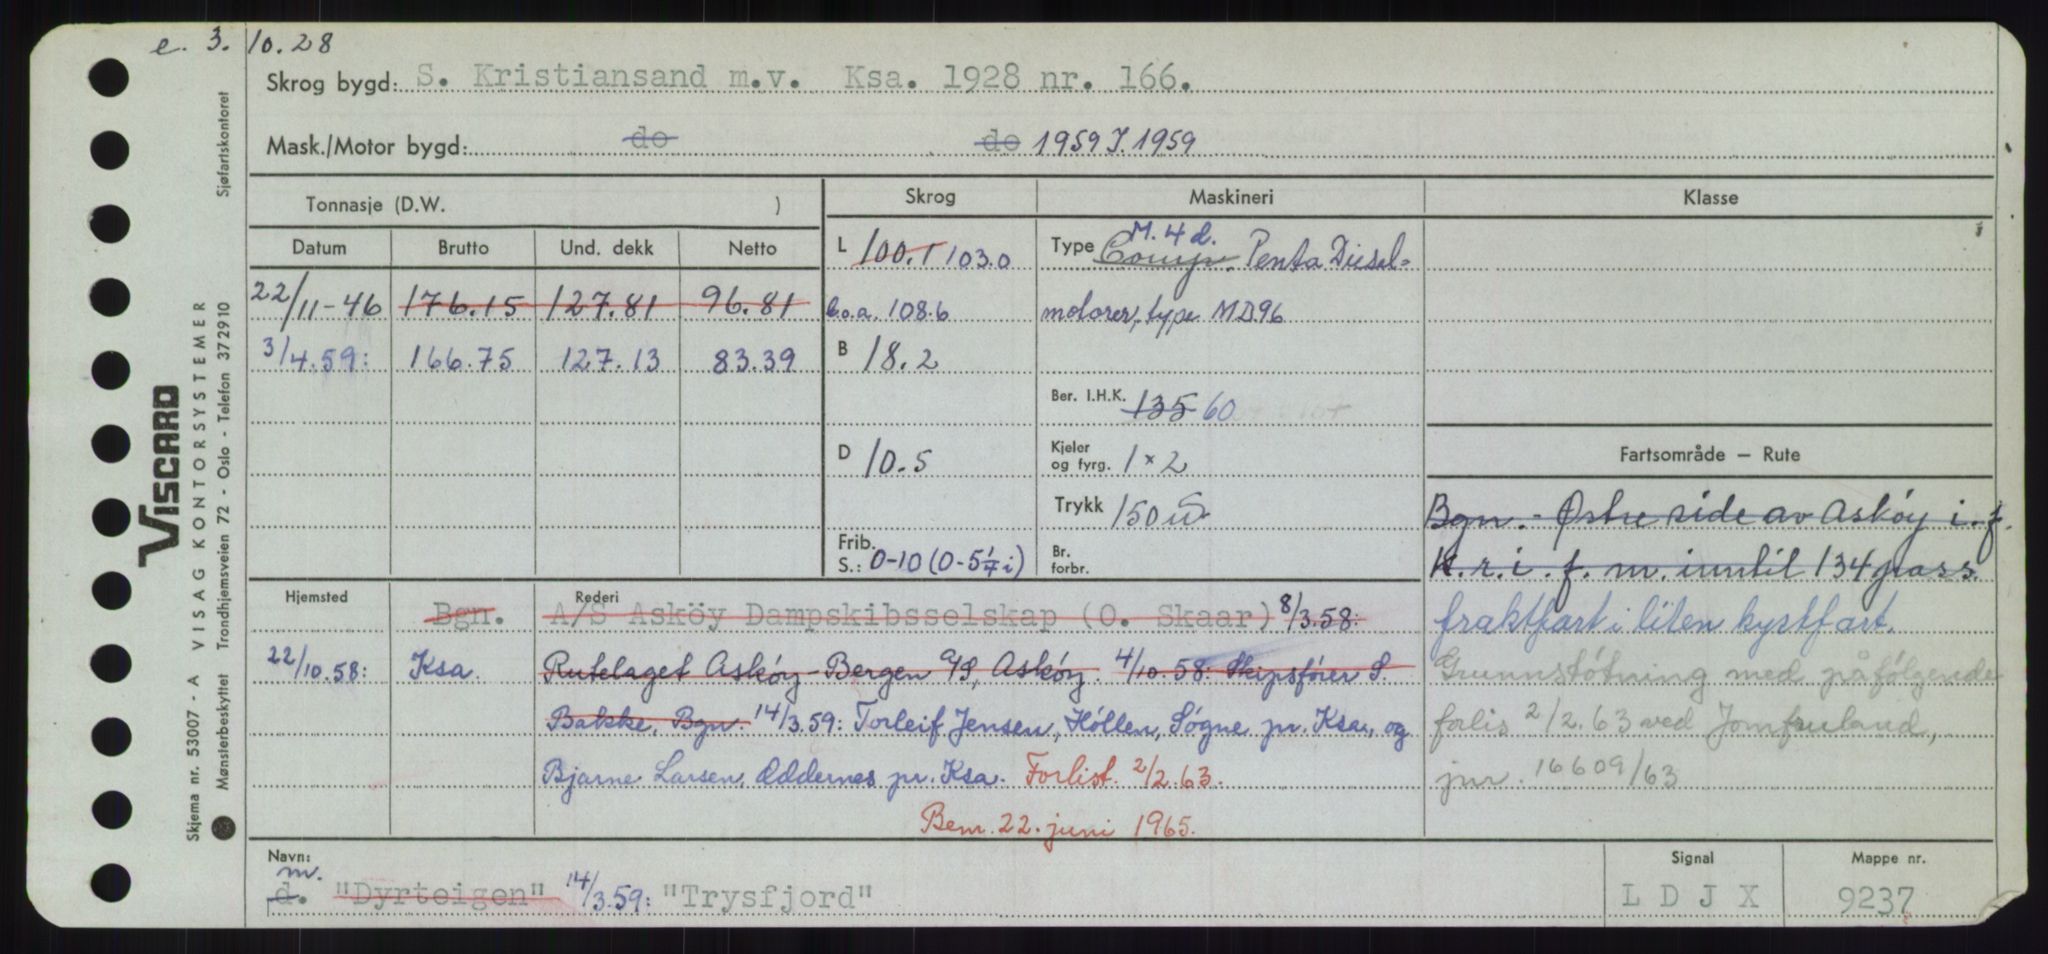 e. 3. 10.28
Skrog bygd: S. Kristiansand m.v. Ksa. 1928 nr. 166.
Mask./Motor bygd: do do 1959 I. 1959
Tonnasje (D.W. )
Skrog
Maskineri
Klasse
Datum Brutto Und. dekk Netto
22/11-46 176.15 127.81 96.81
3/4.59: 166.75 127.13 83.39
L 100.1 103.0
b.o.a. 108.6
B 18.2
D 10.5
Frib.
S.: 0-10 (0-5¼ i)
M. 4 d.
Type Comp. Penta Diesel-
motorer, type MD96
Ber. I.H.K. 135 60
Kjeler
og fyrg. 1 x 2
Trykk 150
Br.
forbr.
Fartsområde — Rute
Bgn. - Østre side av Askøy i. f.
K.r.i.f. m. inntil 134 pass.
fraktfart i liten kystfart.
Grunnstøtning med påfølgende
forlis 2/2.63 ved Jomfruland,
jnr. 16609/63
Hjemsted Rederi
Bgn. A/S Asköy Dampskibsselskap (O. Skaar) 8/3.58:
22/10.58: Ksa. Rutelaget Askøy-Bergen A/S, Askøy. 4/10.58: Skipsfører S.
Bakke, Bgn. 14/3.59: Torleif Jensen, Høllen, Søgne pr. Ksa., og
Bjarne Larsen, Oddernes pr. Ksa. Forlist 2/2.63.
Bem. 22. juni 1965.
Navn:
m.
d. "Dyrteigen" 14/3.59: "Trysfjord"
Signal
L D J X
Mappe nr.
9237
VISCARD
VISAG KONTORSYSTEMER
Skjema nr. 53007 - A
Mønsterbeskyttet Trondhjemsveien 72 - Oslo - Telefon 372910
Sjøfartskontoret